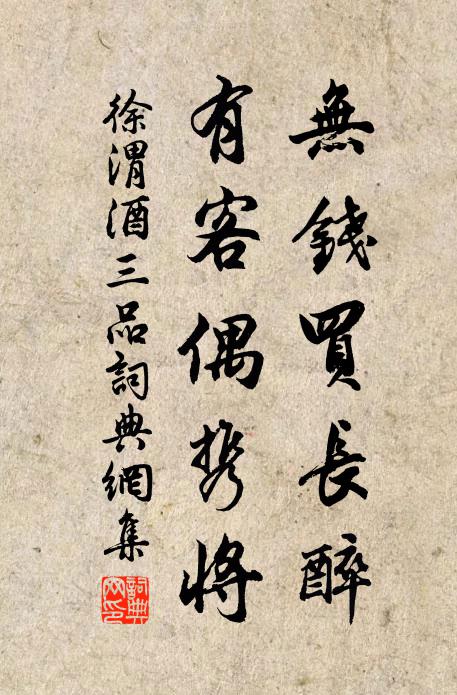 無錢買長醉
有客偶携將
徐渭酒三品詞典網集
詞典
网印